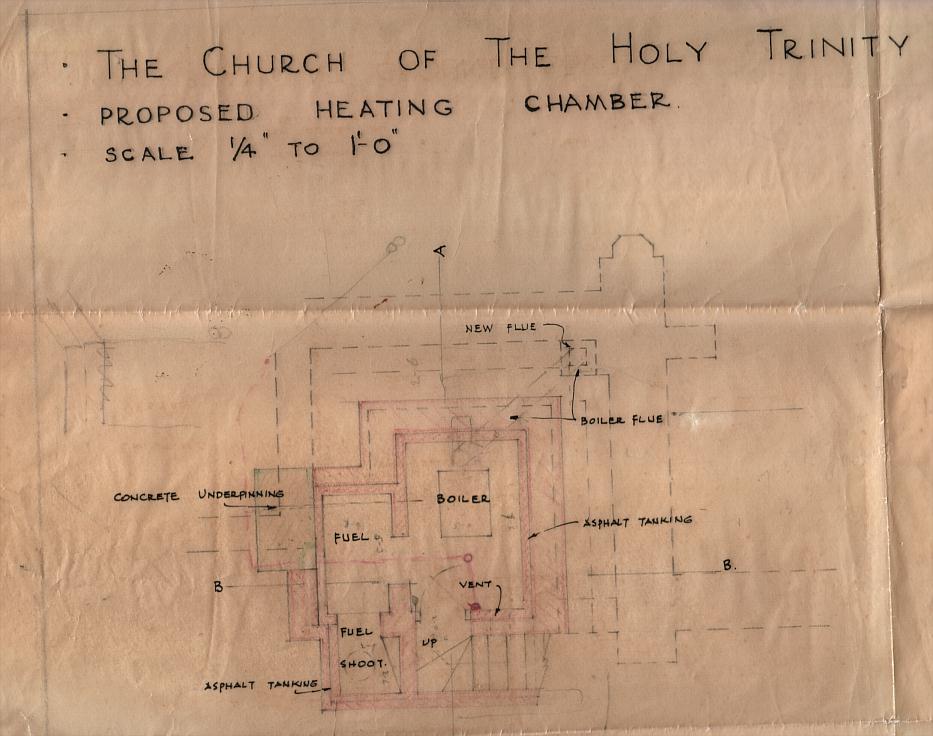 · THE CHURCH OF THE HOLY TRINITY
· PROPOSED HEATING CHAMBER.
· SCALE 1/4" TO 1'-0"
A
NEW FLUE
BOILER FLUE
CONCRETE UNDERPINNING
BOILER
ASPHALT TANKING
FUEL
B
B.
VENT
FUEL
SHOOT.
UP
ASPHALT TANKING